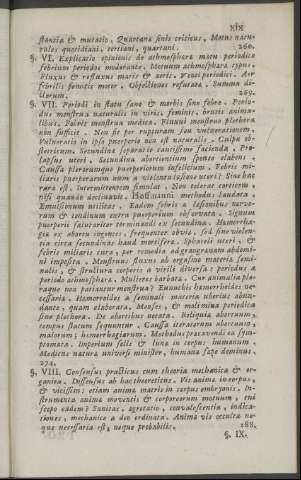 XIX
stantia & mutatio. Quartana sinis criticus. Motus natu-
rales quotidiani, tertiani, quartani. 260.
§. VI. Explicatio opinionis de athmosphæra motu periodico
febrium periodos modulante. Noctuum athmosphæra typus.
Fluxus & refluxus maris & aëris. Venti periodici. Aër
febrilis feroitis motor. Objectiones refutata. Summa di-
ctorum. 269.
§. VII. Periodi in statu sano & morbis sine febre. Perio-
dus menstrua naturalis in viris, feminis, brutis anima-
libus. Valere menstrua vindicta. Fluxui menstruo plethora
non sufficit. Neu sit per rupturam seu vulnerationem.
Vulneratio in ipso puerperio non est naturalis. Culpa ob-
stetricum. Secundina separatio tutissime facienda. Pro-
lapsus uteri. Secundina abortientium sponte elabens.
Caussa plerumque puerperarum infelicium. Febris mi-
liaris puerperarum non a violenta lesione uteri? Sine hac
rara est. Intermittentem simulat. Non tolerat corticem
nisi quando declinavit. Hoffmanni methodus laudata.
Emulsionum utilitas. Eadem febris a lesionibus nervo-
rum & tendinum extra puerperium observata. Signum
puerperii salutariter terminandi ex secundina. Hæmorrha-
giæ ex abortu ingentes, frequenter obvia, sed sine violen-
tia circa secundinas haud mortifera. Sphaceli uteri, &
febris miliaris cura, per remedia adgangraenam abdomi-
ni imposita. Menstruus fluxus ab orgasmo materia semi-
nalis, & structura corporis a virili diversa: periodus a
periodo athmosphæra. Mulieres barbata. Cur animalia ple-
raque non patiantur menstrua? Eunuchis hæmorrhoides ne-
cessaria. Hæmorrhoides a seminali materia uberius abun-
dante, quam elaborata. Menses, & molimina periodica
sine plethora. De abortibus notata. Reliquia abortuum,
tempus statum sequuntur. Caussa iteratorum abortuum,
malorum; hæmorrhagiarum. Methodus præcavendi ea sym-
ptomata. Imperium solis & luna in corpus humanum.
Medicus natura universi minister, humana sæpe dominus.
274.
§. VIII. Consensus practicus cum theoria mechanica & or-
ganica. Dissensus ab hac theoreticus. Vis anima in corpus,
& vicissim: etiam anima matris in corpus embryonis. In-
strumenta anima moventis & corporeorum motuum, cui
scopo eadem? Sanitas, ægrotatio, convalescentia, indica-
tiones, mechanice a deo ordinata. Anima vis occulta ne-
que necessaria est, neque probabilis. 288.
§. IX.